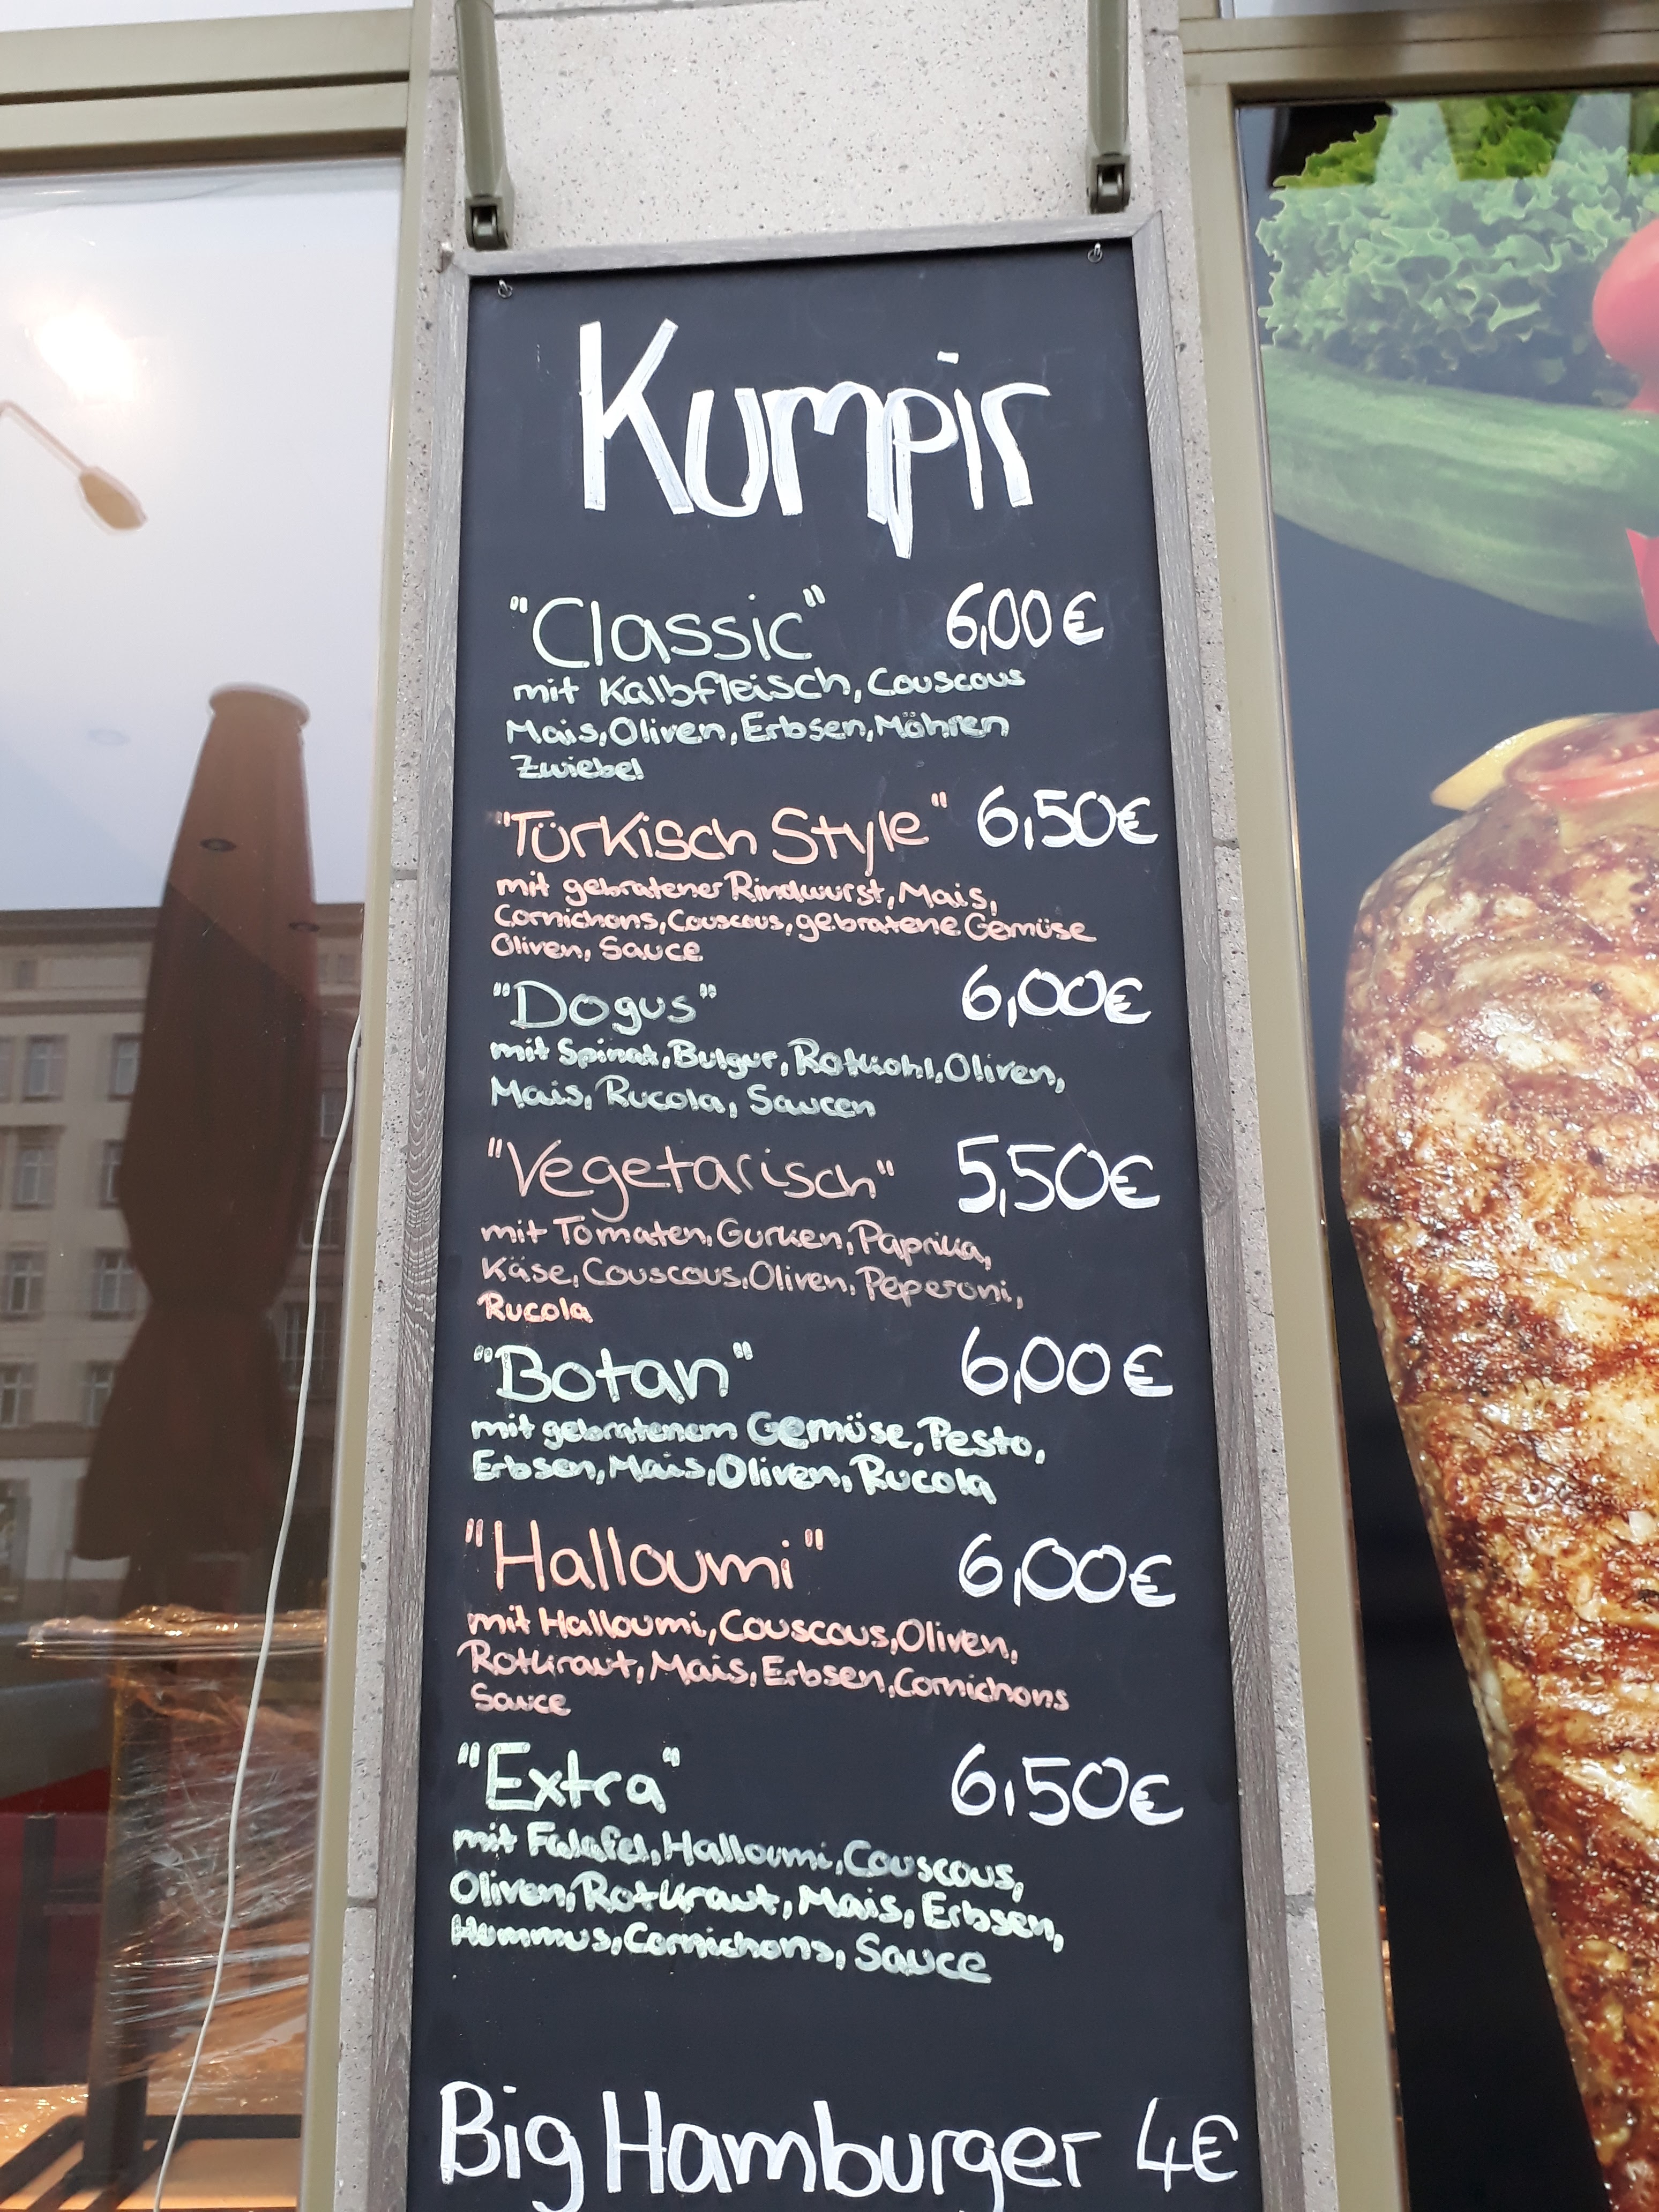 Kumpir
"Classic" 6,00€
mit Kalbfleisch, Couscous
Mais, Oliven, Erbsen, Möhren
Zwiebel
"Türkisch Style" 6,50€
mit gebratener Rindwurst, Mais,
Cornichons, Couscous, gebratene Gemüse
Oliven, Sauce
"Dogus" 6,00€
mit Spinat, Bulgur, Rotkohl, Oliven,
Mais, Rucola, Saucen
"Vegetarisch" 5,50€
mit Tomaten, Gurken, Paprika,
Käse, Couscous, Oliven, Peperoni,
Rucola
"Botan" 6,00€
mit gebratenem Gemüse, Pesto,
Erbsen, Mais, Oliven, Rucola
"Halloumi" 6,00€
mit Halloumi, Couscous, Oliven,
Rotkraut, Mais, Erbsen, Cornichons
Sauce
"Extra" 6,50€
mit Falafel, Halloumi, Couscous,
Oliven, Rotkraut, Mais, Erbsen,
Hummus, Cornichons, Sauce
Big Hamburger 4€